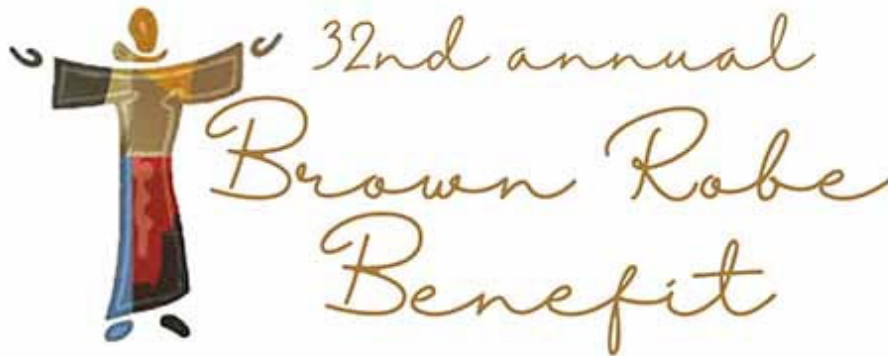 32nd annual
Brown Robe
Benefit